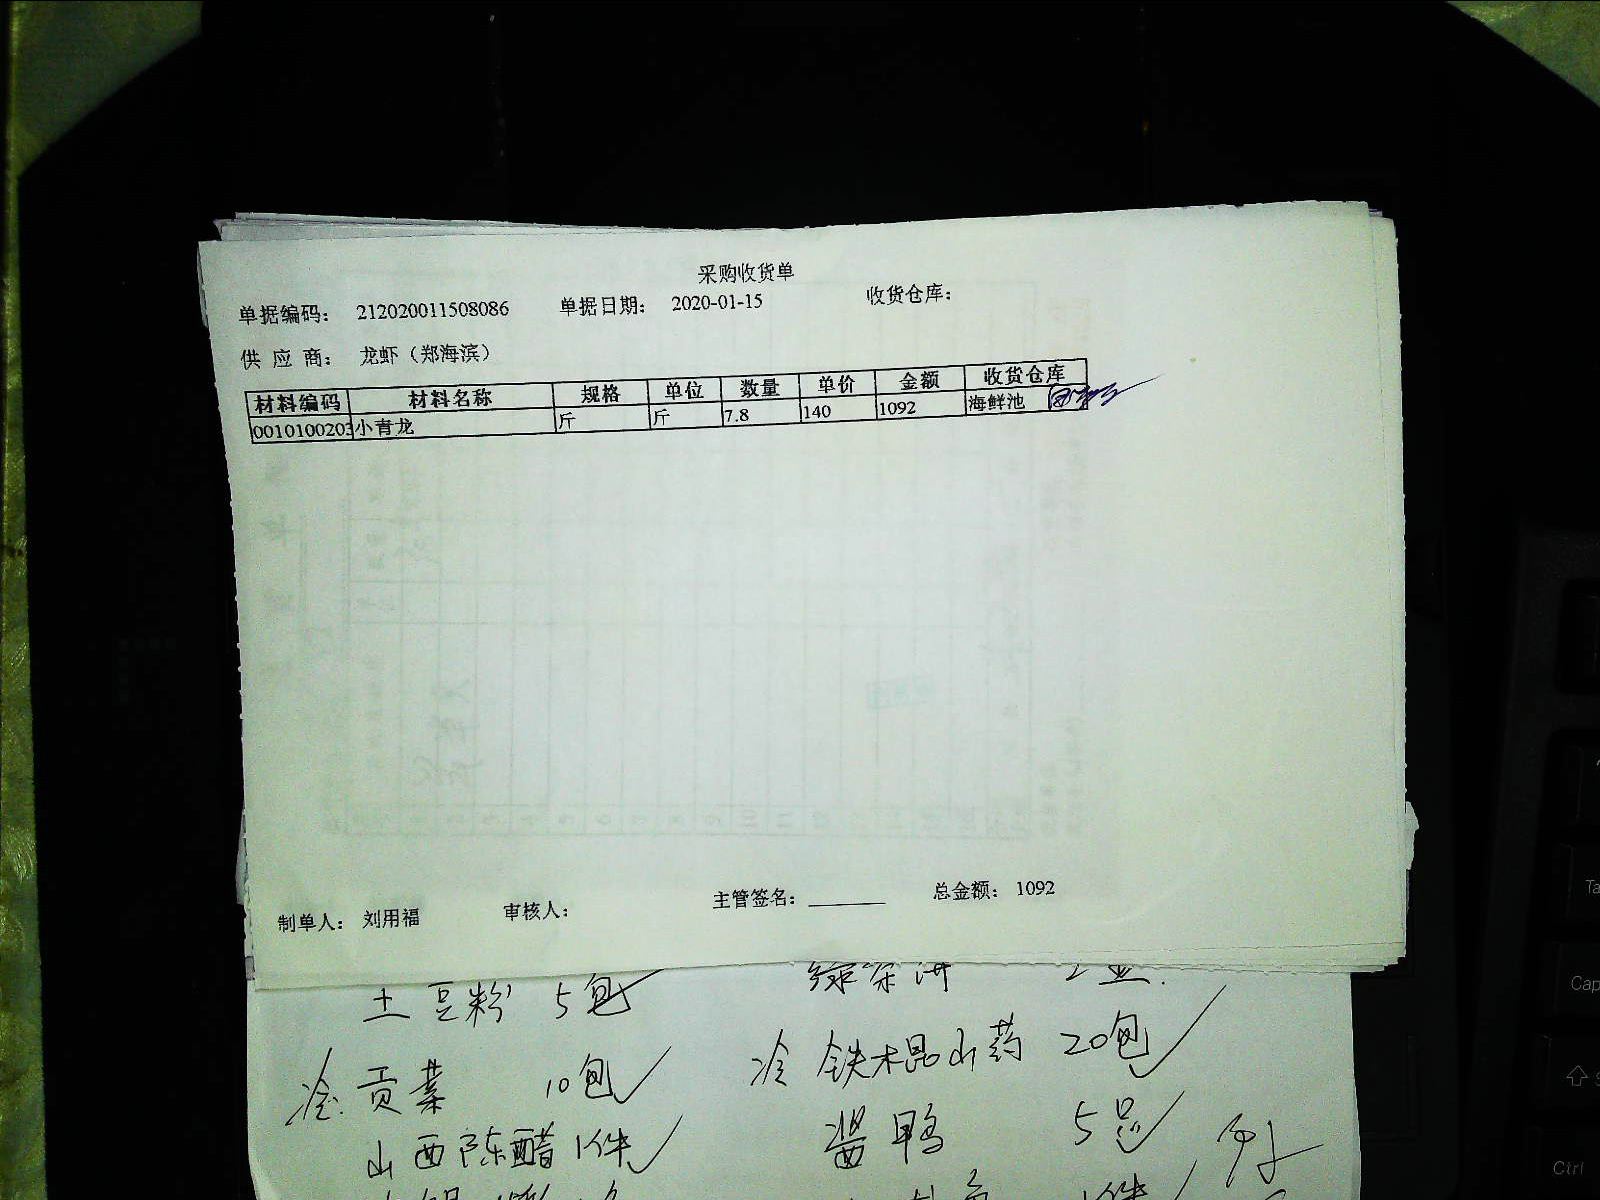 采购收货单
单据编码： 212020011508086 单据日期： 2020-01-15 收货仓库：
供 应 商： 龙虾（郑海滨）
材料编码 材料名称 规格 单位 数量 单价 金额 收货仓库
0010100203 小青龙 斤 斤 7.8 140 1092 海鲜池
制单人： 刘用福 审核人： 主管签名： 总金额： 1092
土豆粉 5包
冷 贡菜 10包 冷 铁棍山药 20包
山西陈醋 1件 酱鸭 5只
Ctrl